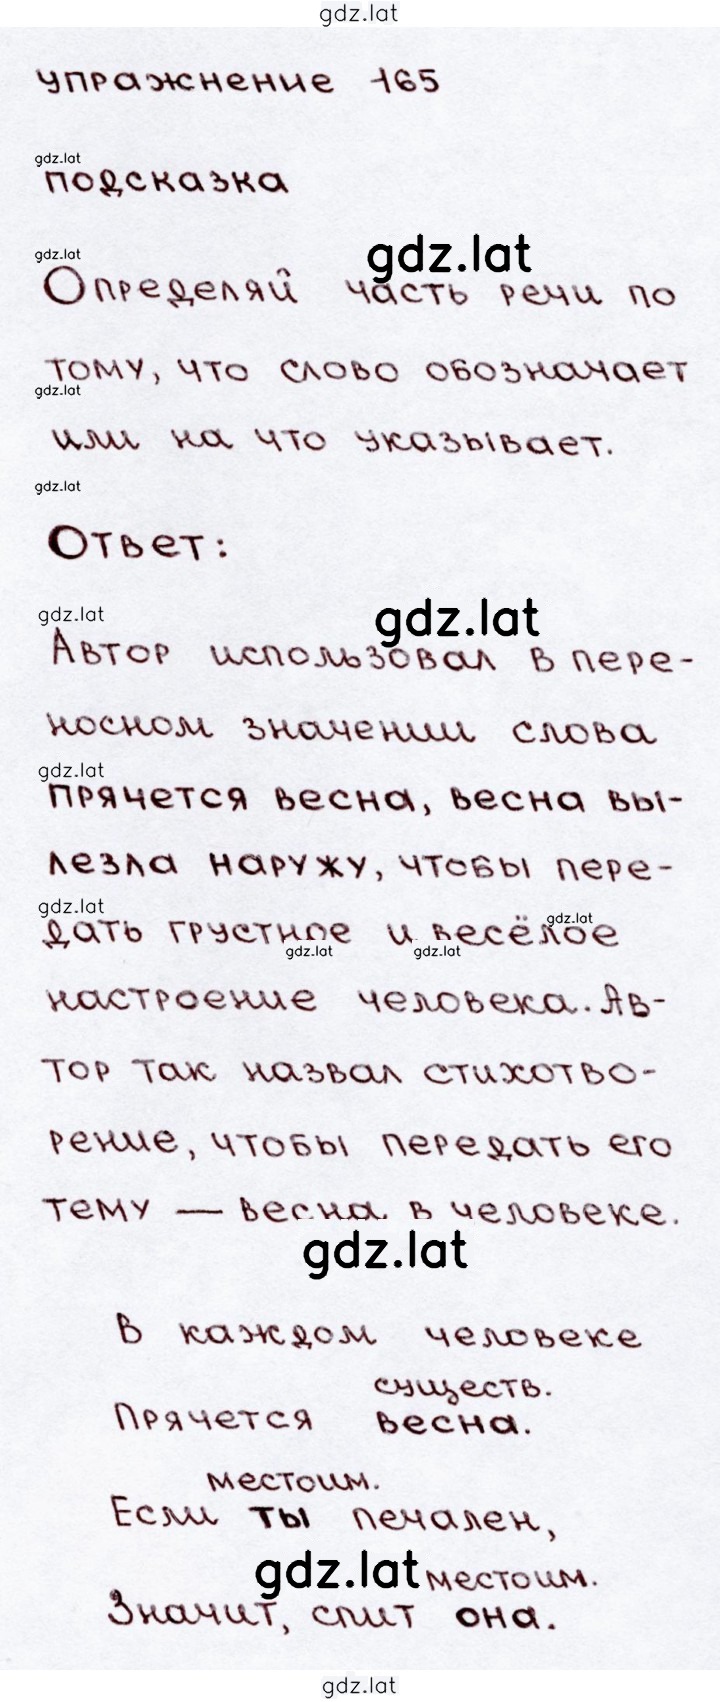 gdz.lat
упражнение 165
gdz.lat
подсказка
gdz.lat
gdz.lat
Определяй часть речи по
тому, что слово обозначает
gdz.lat
или на что указывает.
gdz.lat
Ответ:
gdz.lat
gdz.lat
Автор использовал в пере-
носном значении слова
gdz.lat
прячется весна, весна вы-
лезла наружу, чтобы пере-
gdz.lat
дать грустное и весёлое
gdz.lat
gdz.lat
gdz.lat
настроение человека. Ав-
тор так назвал стихотво-
рение, чтобы передать его
тему — весна в человеке.
gdz.lat
В каждом человеке
существ.
Прячется весна.
местоим.
Если ты печален,
gdz.lat
местоим.
Значит, спит она.
gdz.lat